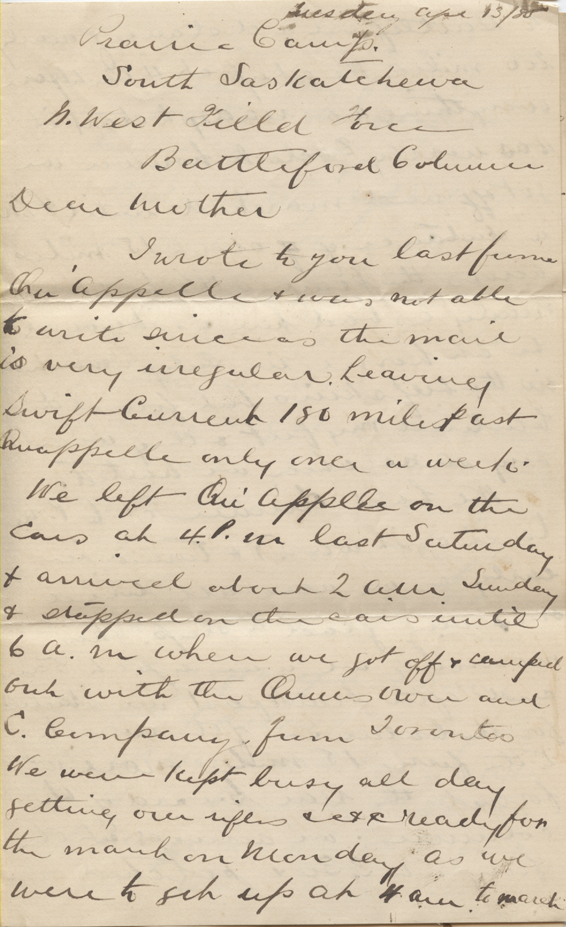 Tuesday Apr 13/85
Prairie Camp.
South Saskatchewa
N. West Field Force
Battleford Column
Dear Mother
I wrote to you last from
Qu'Appelle & was not able
to write since as the mail
is very irregular. Leaving
Swift Current 180 miles past
Quappelle only once a week.
We left Qu'Applle on the
cars at 4. P. m last Saturday
& arrived about 2 am Sunday
& stopped on the cars until
6 a. m when we got off & camped
out with the Queens Own and
C. Company from Toronto
We were kept busy all day
getting our rifles &c ready for
the march on Monday as we
were to get up at 4 am to march